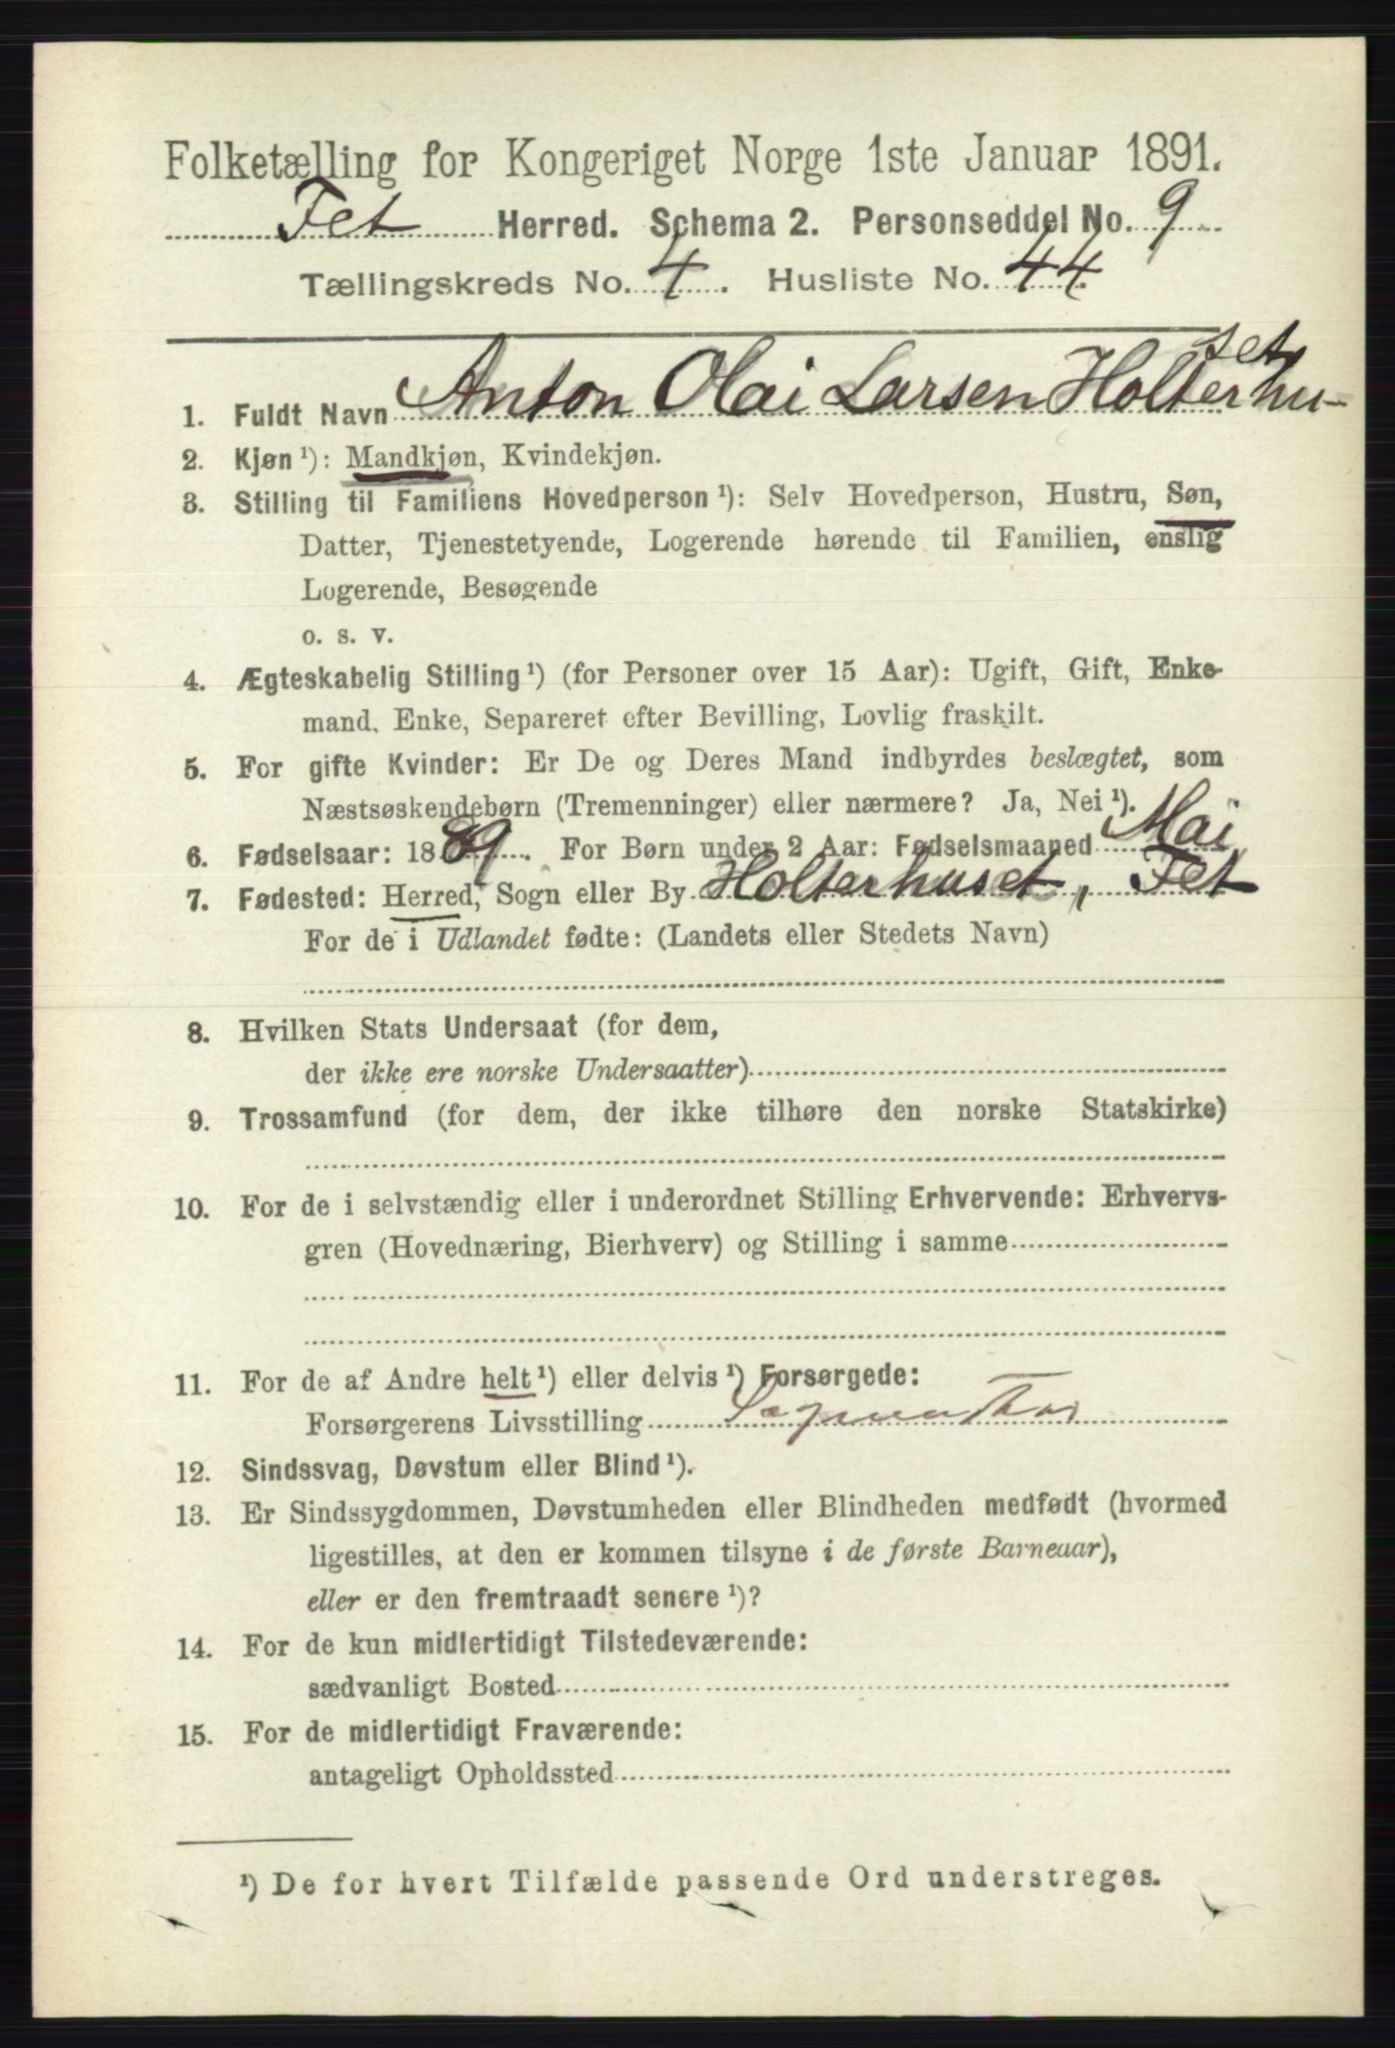 Folketælling for Kongeriget Norge 1ste Januar 1891.
Fet Herred. Schema 2. Personseddel No. 9
Tællingskreds No. 4. Husliste No. 44.
set
1. Fuldt Navn Anton Olai Larsen Holterhu-
2. Kjøn ¹): Mandkjøn, Kvindekjøn.
3. Stilling til Familiens Hovedperson ¹): Selv Hovedperson, Hustru, Søn,
Datter, Tjenestetyende, Logerende hørende til Familien, enslig
Logerende, Besøgende
o. s. v.
4. Ægteskabelig Stilling ¹) (for Personer over 15 Aar): Ugift, Gift, Enke-
mand, Enke, Separeret efter Bevilling, Lovlig fraskilt.
5. For gifte Kvinder: Er De og Deres Mand indbyrdes beslægtet, som
Næstsøskendebørn (Tremenninger) eller nærmere? Ja, Nei ¹).
6. Fødselsaar: 1889. For Børn under 2 Aar: Fødselsmaaned Mai
7. Fødested: Herred, Sogn eller By Holterhuset, Fet
For de i Udlandet fødte: (Landets eller Stedets Navn)
8. Hvilken Stats Undersaat (for dem,
der ikke ere norske Undersaatter)
9. Trossamfund (for dem, der ikke tilhøre den norske Statskirke)
10. For de i selvstændig eller i underordnet Stilling Erhvervende: Erhvervs-
gren (Hovednæring, Bierhverv) og Stilling i samme
11. For de af Andre helt ¹) eller delvis ¹) Forsørgede:
Forsørgerens Livsstilling
12. Sindssvag, Døvstum eller Blind ¹).
13. Er Sindssygdommen, Døvstumheden eller Blindheden medfødt (hvormed
ligestilles, at den er kommen tilsyne i de første Barneaar),
eller er den fremtraadt senere ¹)?
14. For de kun midlertidigt Tilstedeværende:
sædvanligt Bosted
15. For de midlertidigt Fraværende:
antageligt Opholdssted
¹) De for hvert Tilfælde passende Ord understreges.